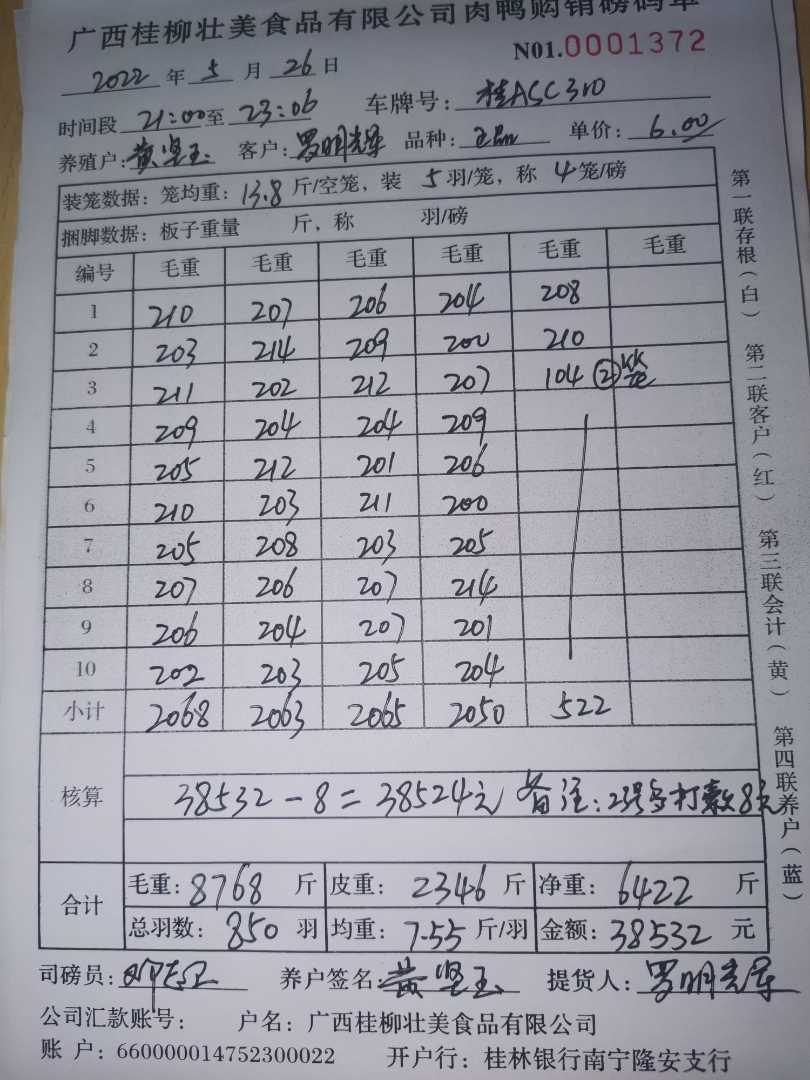 广西桂柳壮美食品有限公司肉鸭购销磅码单
2022 年 5 月 26 日 N01.0001372
时间段 21:00 至 23:06 车牌号: 桂ASC310
养殖户: 黄坚玉 客户: 罗明光军 品种: 单价: 6.00
装笼数据: 笼均重: 13.8 斤/空笼, 装 5 羽/笼, 称 4 笼/磅
捆脚数据: 板子重量 斤, 称 羽/磅
编号 毛重 毛重 毛重 毛重 毛重 毛重
1 210 207 206 204 208
2 203 214 209 200 210
3 211 202 212 207 104 ②笼
4 209 204 204 209
5 205 212 201 206
6 210 203 211 200
7 205 208 203 205
8 207 206 207 214
9 206 204 207 201
10 202 203 205 204
小计 2068 2063 2065 2050 522
核算 38532-8=38524元 备注: 23号打 数8元
合计 毛重: 8768 斤 皮重: 2346 斤 净重: 6422 斤
总羽数: 850 羽 均重: 7.55 斤/羽 金额: 38532 元
司磅员: 养户签名: 黄坚玉 提货人: 罗明光军
公司汇款账号: 户名: 广西桂柳壮美食品有限公司
账 户: 660000014752300022 开户行: 桂林银行南宁隆安支行
第一联存根(白) 第二联客户(红) 第三联会计(黄) 第四联养户(蓝)